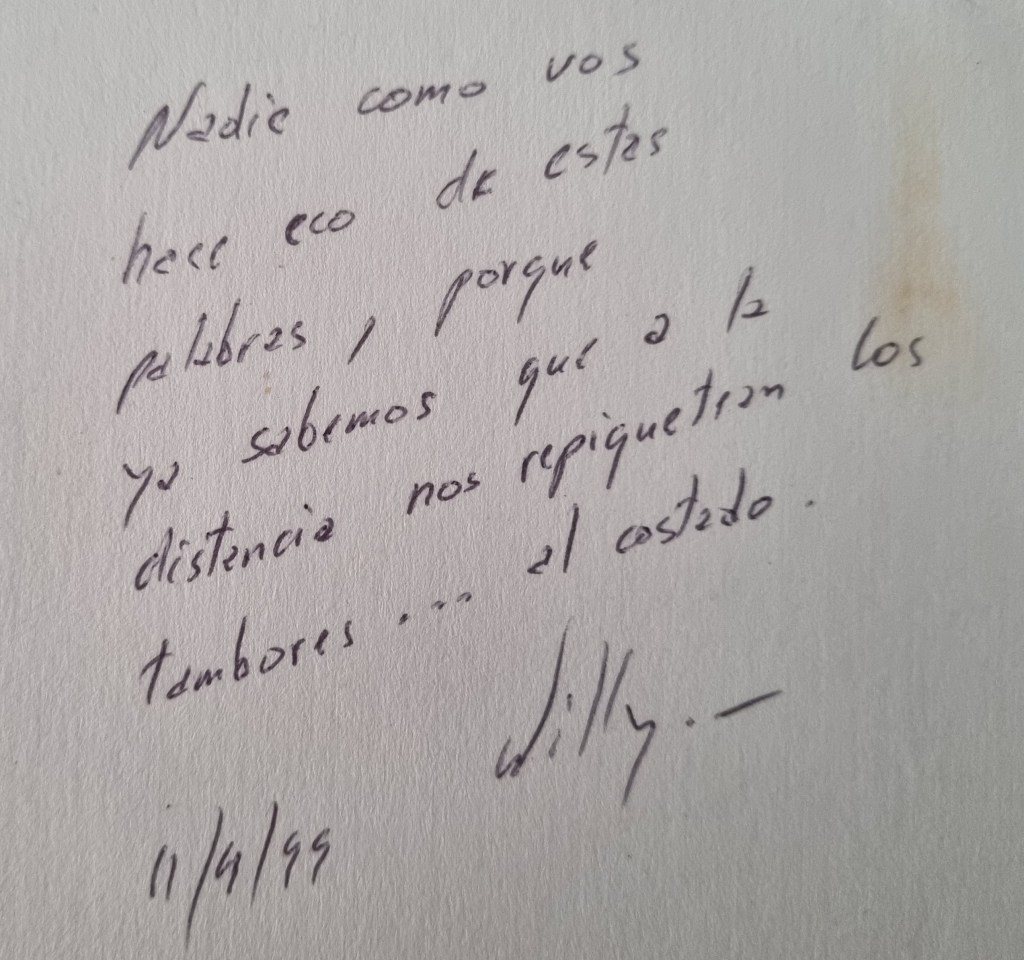 Nadie como vos
hace eco de estas
palabras, porque
ya sabemos que a la
distancia nos repiquetean los
tambores ... al costado.
Willy.—
11/9/99